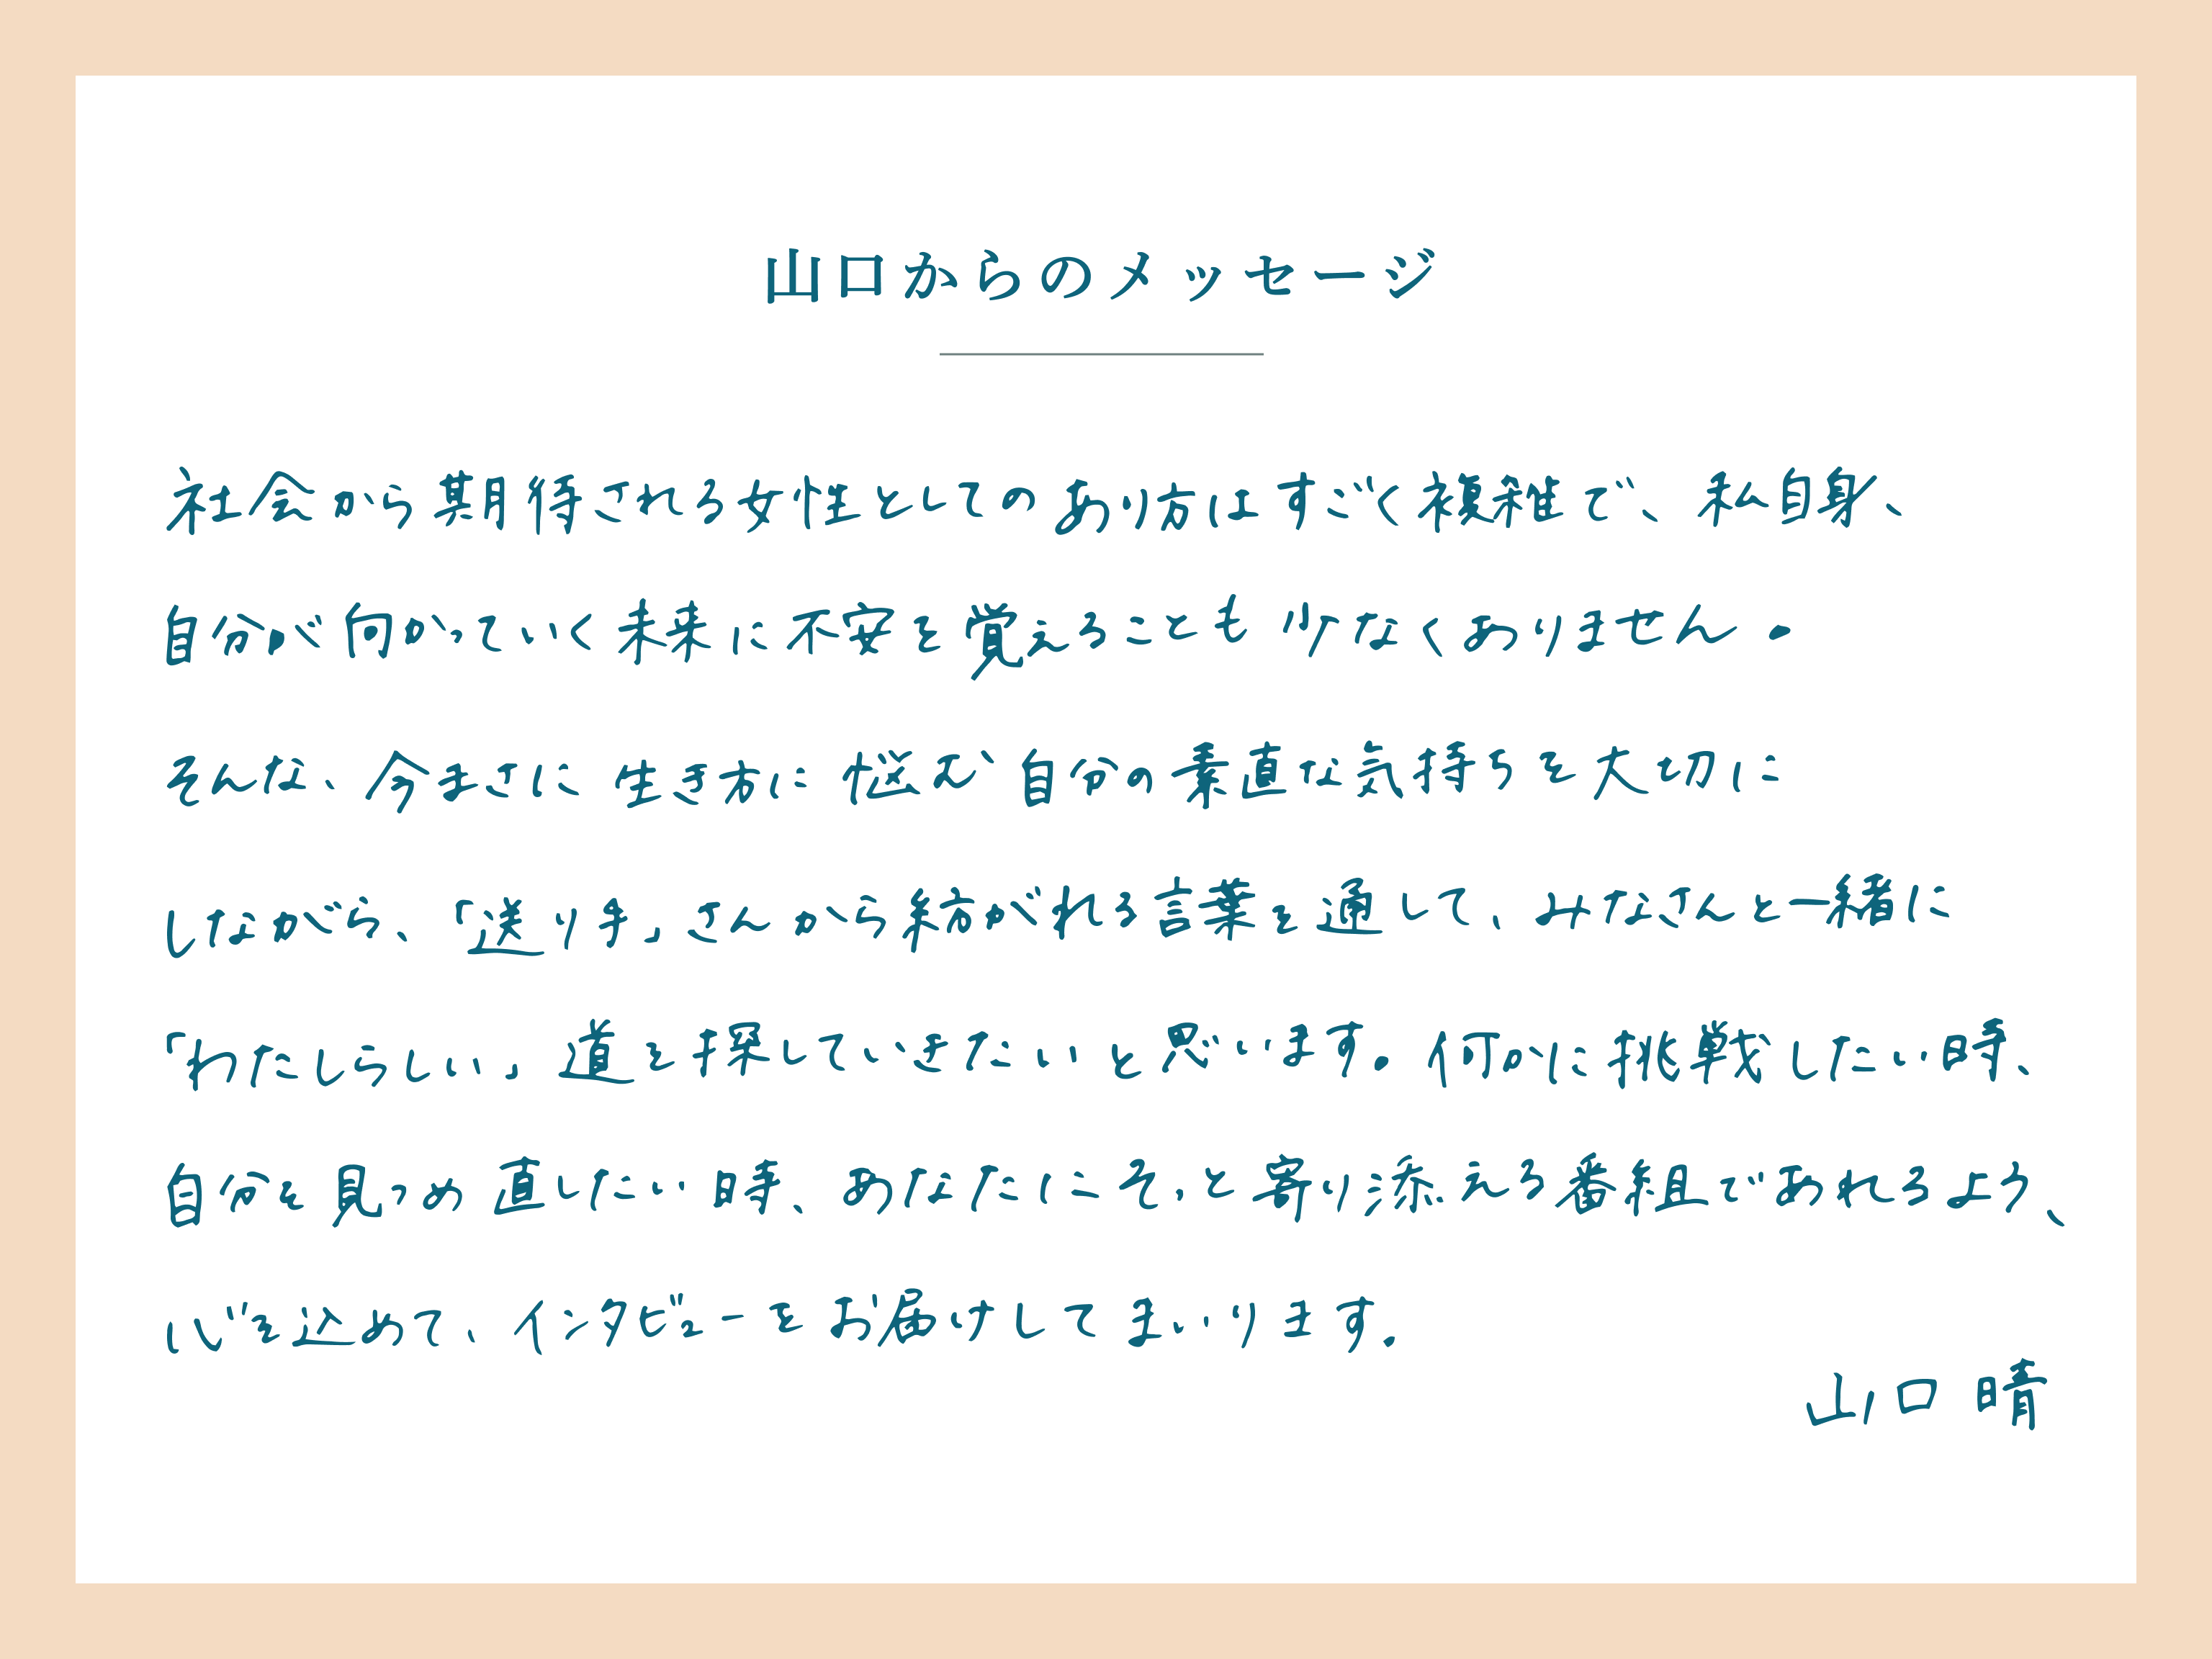 山口からのメッセージ
社会から期待される女性としてのあり方は すごく複雑で、私自身、
自分が向かっていく未来に不安を覚えることも少なくありません。
そんな、今まさに 生き方に悩む、自分の素直な気持ちを大切に
しながら、「達人」さんから紡がれる言葉を通して、みなさんと一緒に
「わたしらしい」道を探していきたいと思います。何かに挑戦したい時、
自分を見つめ直したい時、あなたにそっと寄り添える番組であれるよう、
心を込めて、インタビューをお届けしてまいります。
山口 晴